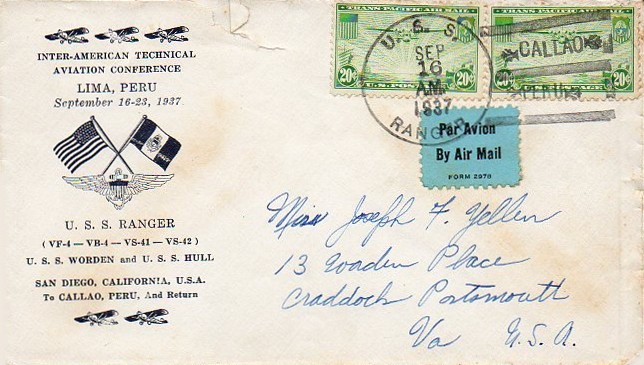 INTER-AMERICAN TECHNICAL
AVIATION CONFERENCE
LIMA, PERU
September 16-23, 1937
U. S. S. RANGER
( VF-4 — VB-4 — VS-41 — VS-42 )
U. S. S. WORDEN and U. S. S. HULL
SAN DIEGO, CALIFORNIA, U.S.A.
To CALLAO, PERU, And Return
TRANS-PACIFIC AIR MAIL
20¢ 20¢
U.S. POSTAGE
TRANS-PACIFIC AIR MAIL
20¢ 20¢
U.S. POSTAGE
U. S. S.
SEP
16
AM
1937
RANGER
CALLAO
PERU
Par Avion
By Air Mail
FORM 2978
Miss Joseph F. Yellen
13 Woaden Place
Craddock Portsmouth
Va U.S.A.